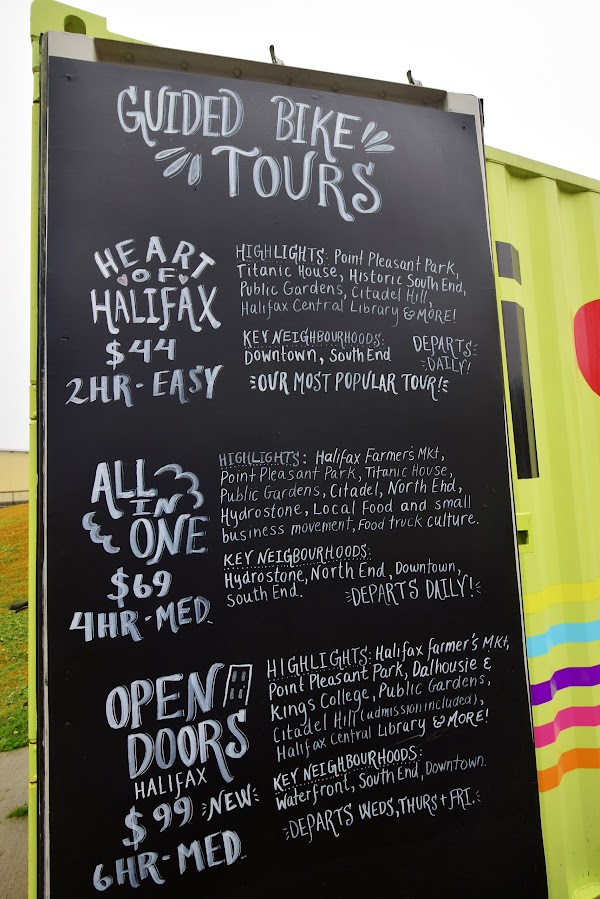 GUIDED BIKE
TOURS
HEART
OF
HALIFAX
$44
2HR-EASY
HIGHLIGHTS: Point Pleasant Park,
Titanic House, Historic South End,
Public Gardens, Citadel Hill,
Halifax Central Library & MORE!
KEY NEIGHBOURHOODS:
Downtown, South End
DEPARTS
DAILY!
OUR MOST POPULAR TOUR!
ALL
IN
ONE
$69
4HR-MED.
HIGHLIGHTS: Halifax Farmer's Mkt,
Point Pleasant Park, Titanic House,
Public Gardens, Citadel, North End,
Hydrostone, Local Food and small
business movement, Food truck culture.
KEY NEIGBOURHOODS:
Hydrostone, North End, Downtown,
South End.
DEPARTS DAILY!
OPEN
DOORS
HALIFAX
$99 NEW
6HR-MED
HIGHLIGHTS: Halifax farmer's Mkt,
Point Pleasant Park, Dalhousie &
Kings College, Public Gardens,
Citadel Hill (admission included),
Halifax Central Library & MORE!
KEY NEIGHBOURHOODS:
Waterfront, South End, Downtown.
DEPARTS WEDS, THURS + FRI.